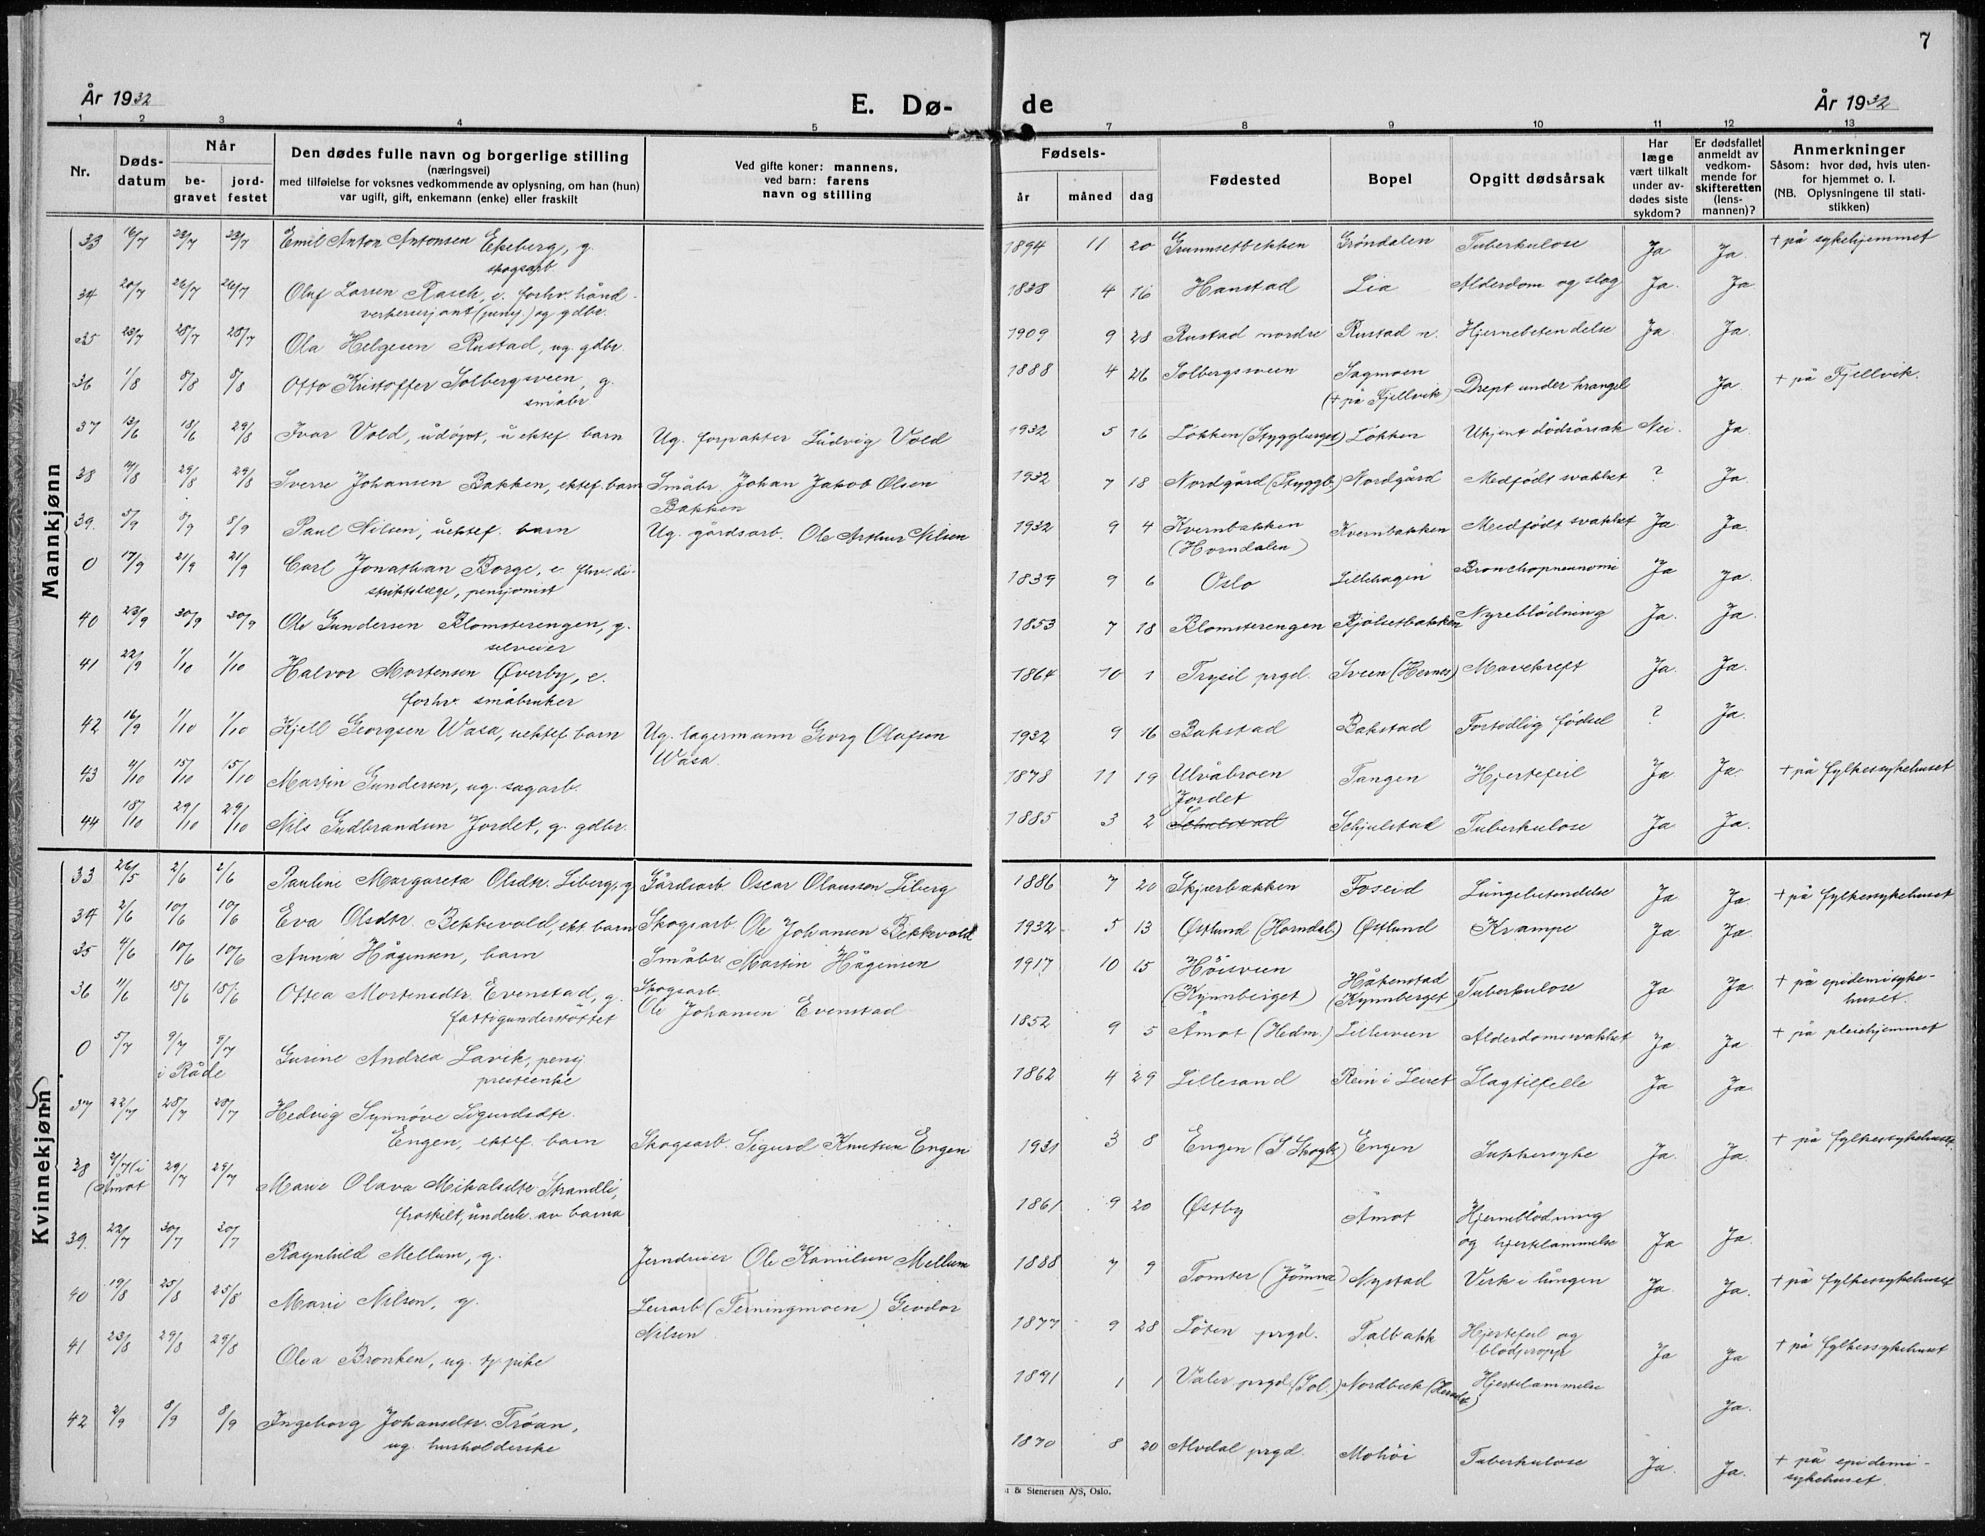 7
År 1932
E. Dø-
de
År 1932
1 2 3 4 5 7 8 9 10 11 12 13
Nr.
Døds-
datum
Når
be-
gravet
jord-
festet
Den dødes fulle navn og borgerlige stilling
(næringsvei)
med tilføielse for voksnes vedkommende av oplysning, om han (hun)
var ugift, gift, enkemann (enke) eller fraskilt
Ved gifte koner: mannens,
ved barn: farens
navn og stilling
Fødsels-
år måned dag
Fødested
Bopel
Opgitt dødsårsak
Har
læge
vært tilkalt
under av-
dødes siste
sykdom?
Er dødsfallet
anmeldt av
vedkom-
mende for
skifteretten
(lens-
mannen)?
Anmerkninger
Såsom: hvor død, hvis uten-
for hjemmet o. l.
(NB. Oplysningene til stati-
stikken)
Mannkjønn
33 16/7 23/7 23/7 Emil Anton Antonsen Ekeberg, g. 1894 11 20 Grunnsetbekken Grøndalen Tuberkulose Ja Ja. + på sykehjemmet
skogsarb
34 20/7 26/7 26/7 Oluf Larsen Rasch, e. forhv. hånd- 1838 4 16 Hanstad Lia Alderdom og slag Ja. Ja
verkersersjant (pensj.) og gdbr.
35 23/7 28/7 28/7 Ola Helgesen Rustad, ug. gdbr. 1909 9 28 Rustad nordre Rustad n. Hjernebetendelse Ja. Ja.
36 1/8 8/8 8/8 Otto Kristoffer Solbergsveen, g. 1888 4 26 Solbergsveen Sagmoen Drept under krangel Ja. + på Fjellvik.
småbr (+ på Fjellvik)
37 13/6 18/6 29/8 Ivar Vold, udöpt, u.ektef. barn Ug. forpakter Ludvig Vold 1932 5 16 Løkken (Styggberget) Løkken Ukjent dødsårsak Nei. Ja.
38 29/8 29/8 Sverre Johansen Bakken, ektef. barn Småbr Johan Jakob Olsen 1932 7 18 Nordgård (Styggb.) Nordgård Medfødt svakhet ? Ja.
Bakken
39. 5/9 8/9 8/9 Paul Nilsen, uektef. barn Ug. gårdsarb. Ole Arthur Nilsen 1932 9 4 Kvernbakken Kvernbakken Medfødt svakhet Ja Ja.
(Horndalen)
0 17/9 21/9 21/9 Carl Jonathan Borge, e. fhv. di- 1839 9 6 Oslo Lillehagen Bronchopneunomi Ja Ja.
striktslæge, pensjonist
40 23/9 30/9 30/9 Ole Gundersen Blomsterengen, g. 1853 7 18 Blomsterengen Kjølsetbakken Nyreblødning Ja. Ja.
selveier
41 22/9 1/10 1/10 Halvor Mortensen Øverby, e. 1864 10 1 Trysil prgd. Sveen (Hernes) Mavekreft Ja. Ja.
forhv. småbruker
42 16/9 1/10 1/10 Kjell Georgsen Wasa, uektef. barn Ug. lagermann Georg Olafsen 1932 9 16 Bakstad Bakstad Fortidlig fødsel ? Ja.
Wasa.
43 4/10 15/10 15/10 Martin Gundersen, ug. sagarb. 1878 11 19 Ulvåbroen Tangen Hjertefeil Ja. Ja. + på fylkessykehuset
44 18/10 29/10 29/10 Nils Gudbrandsen Jordet, g. gdbr. 1885 3 2 Jordet Schjulstad Tuberkulose Ja Ja.
Kvinnekjønn
33 26/5 2/6 2/6 Pauline Margareta Olsdtr. Liberg, g Gårdsarb Oscar Olaussen Liberg 1886 7 20 Skjærbakken Foseid Lungebetendelse Ja Ja. + på fylkessykehuset
34 2/6 10/6 10/6 Eva Olsdtr. Bekkevold, ekt barn Skogsarb Ole Johansen Bekkevold 1932 5 13 Østlund (Horndal.) Østlund Krampe Ja Ja.
35 4/6 10/6 10/6 Anna Hågensen, barn Småbr. Martin Hågensen 1917 10 15 Høisveen Håkenstad Tuberkulose Ja Ja. + på epidemisyke-
(Kynnberget) (Kynnberget) huset.
36 11/6 15/6 15/6 Ottea Mortensdtr. Evenstad, g. Skogsarb 1852 9 5 Åmot (Hedm.) Lilleveen Alderdomssvakhet Ja. Ja. + på pleiehjemmet
fattigunderstöttet Ole Johansen Evenstad
0 5/7 9/7 9/7 Gurine Andrea Lavik, pensj. 1862 4 29 Lillesand Rein i Leiret Slagtilfelle Ja Ja.
i Råde presteenke
37 22/7 28/7 28/7 Hedvig Synnöve Sigurdsdtr. 1931 3 8 Engen Engen Ja. Ja. + på fylkessykehuset
Engen, ektef. barn Skogsarb. Sigurd Knutsen Engen
38 29/7 29/7 Marie Olava Mikalsdtr. Strandli, 1861 9 20 Østby Åmot Hjerneblödning Ja Ja.
(Åmot fraskilt, underh. av barna og hjertelammelse
39. 22/7 30/7 30/7 Ragnhild Mellum, g. Ole Kamilsen Mellum 1888 7 9 Tomter (Jömna) Nystad Verk i lungen Ja. Ja. + på fylkessykehuset
40 19/8 25/8 25/8 Marie Nilsen, g. Leirarb. (Terningmoen) Gevdor 1877 9 28 Løten prgd. Talbakk Hjertefeil og Ja Ja + på fylkessykehuset
Nilsen. blodpropp
41 23/8 29/8 29/8 Olea Bronken, ug. tj.pike 1891 1 1 Våler prgd. (Sol.) Nordbæk Hjertelammelse Ja.
42 2/9 8/9 8/9 Ingeborg Johansdtr. Tröan, 1870 8 20 Alvdal prgd. Mohöi Tuberkulose Ja. Ja. + på epidemi-
ug. husholderske sykehuset.
& Stenersen A/S, Oslo.